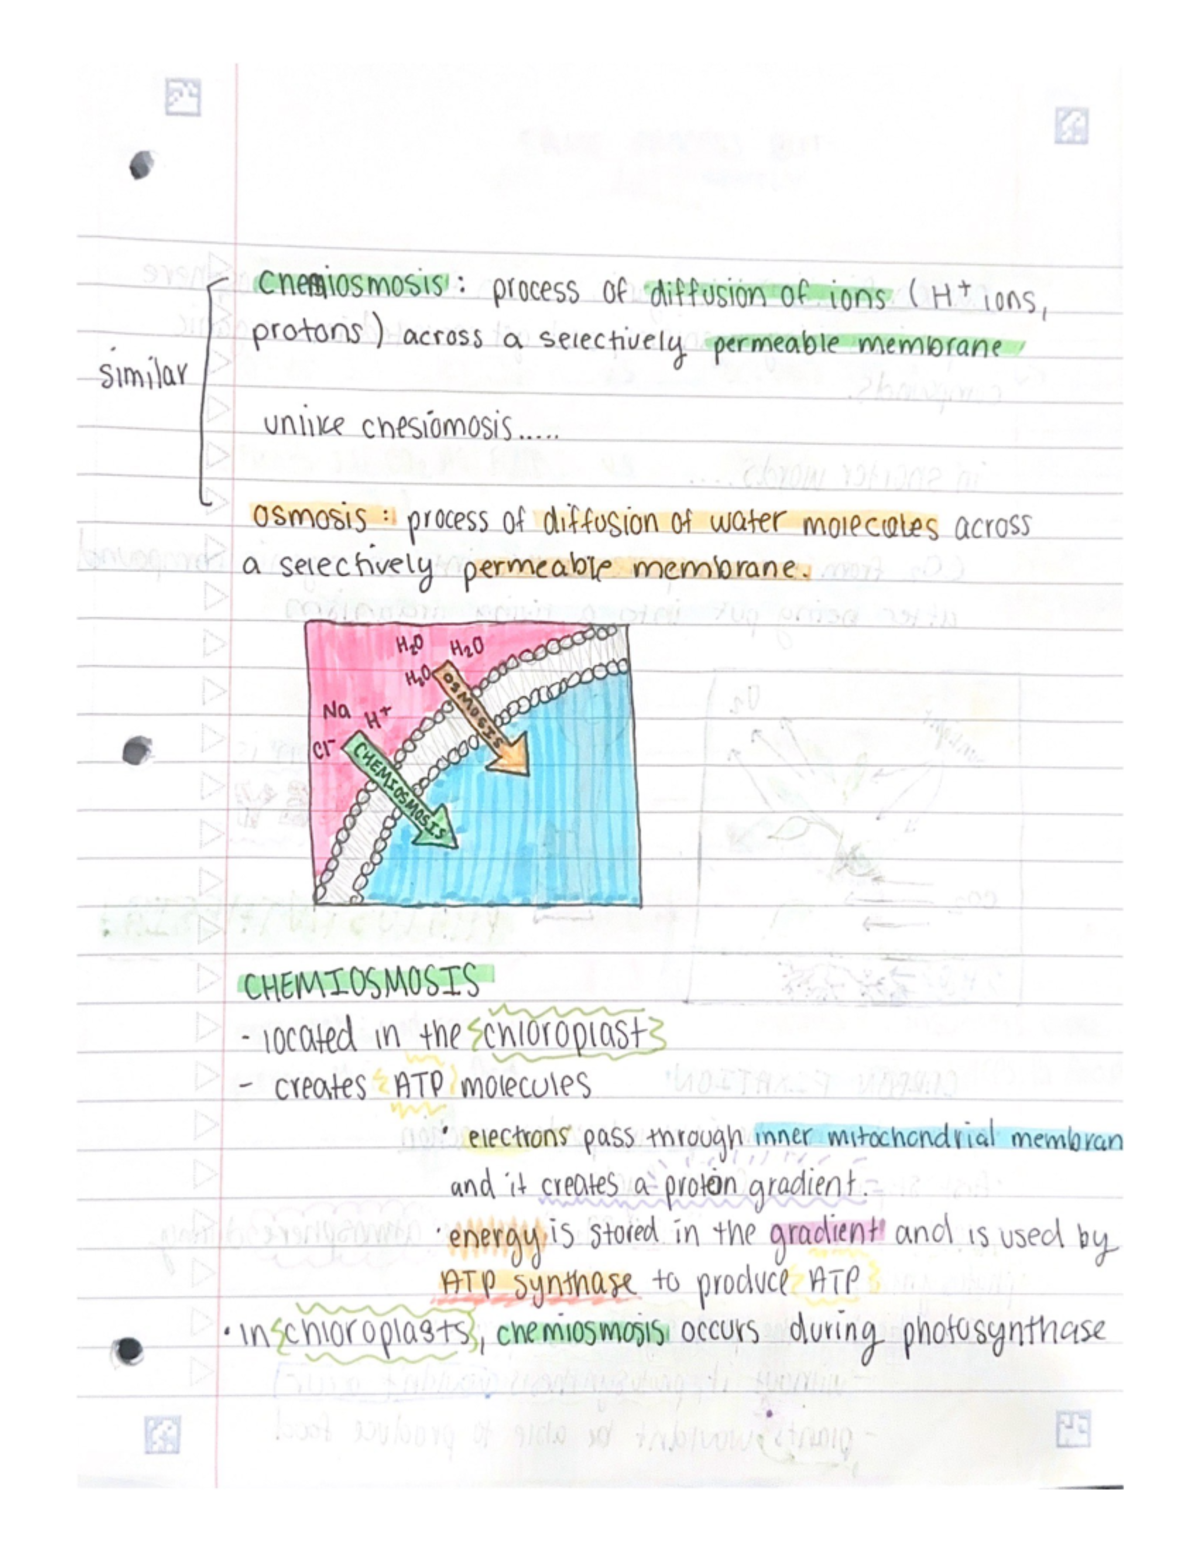 Chemiosmosis : process of diffusion of ions ( H+ ions,
protons ) across a selectively permeable membrane
similar
unlike chesiomosis.....
osmosis : process of diffusion of water molecules across
a selectively permeable membrane.
H2O H2O
H2O OSMOSIS
Na H+
Cl- CHEMIOSMOSIS
CHEMIOSMOSIS
- located in the chloroplast
- creates ATP molecules
• electrons pass through inner mitochondrial membran
and it creates a proton gradient.
• energy is stored in the gradient and is used by
ATP synthase to produce ATP
• in chloroplasts, chemiosmosis occurs during photosynthase